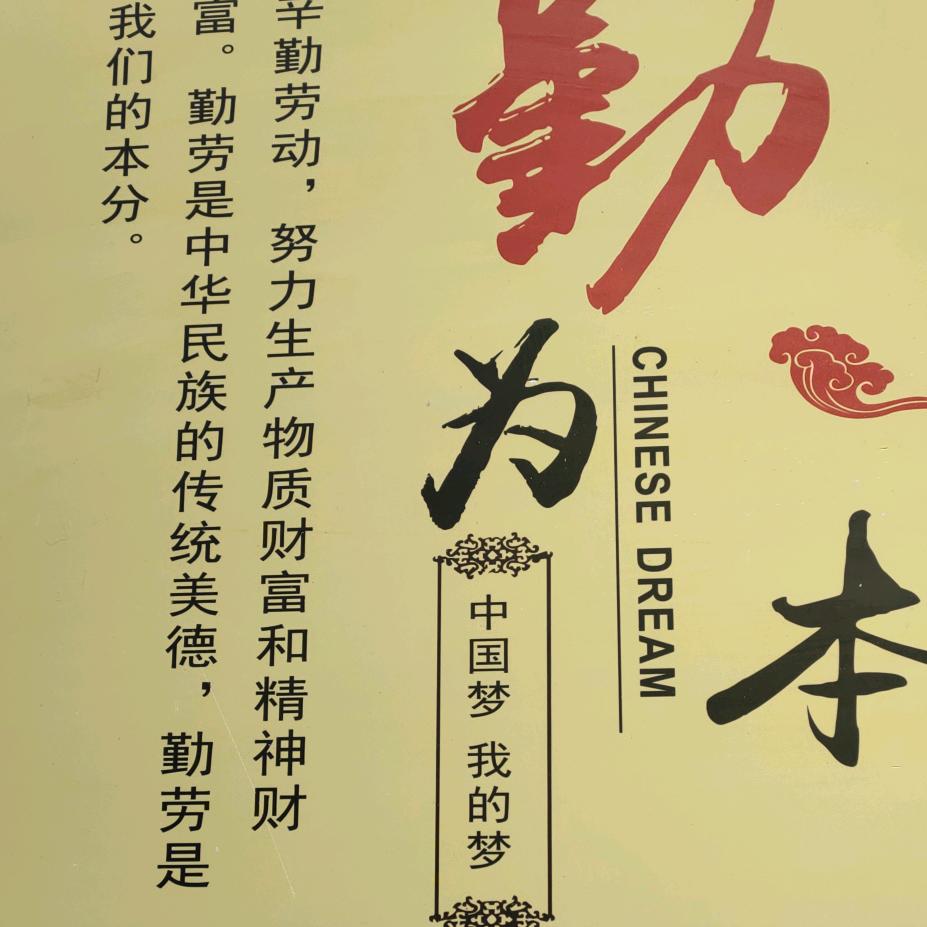 勤
为
本
CHINESE DREAM
中国梦 我的梦
辛勤劳动，努力生产物质财富和精神财
富。勤劳是中华民族的传统美德，勤劳是
我们的本分。